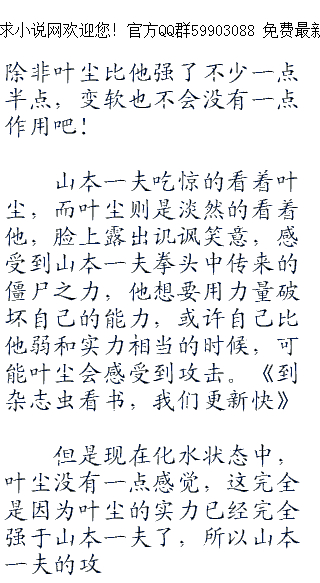 求小说网欢迎您! 官方QQ群59903088 免费最新
除非叶尘比他强了不少一点
半点，变软也不会没有一点
作用吧！
山本一夫吃惊的看着叶
尘，而叶尘则是淡然的看着
他，脸上露出讥讽笑意，感
受到山本一夫拳头中传来的
僵尸之力，他想要用力量破
坏自己的能力，或许自己比
他弱和实力相当的时候，可
能叶尘会感受到攻击。《到
杂志虫看书，我们更新快》
但是现在化水状态中，
叶尘没有一点感觉，这完全
是因为叶尘的实力已经完全
强于山本一夫了，所以山本
一夫的攻